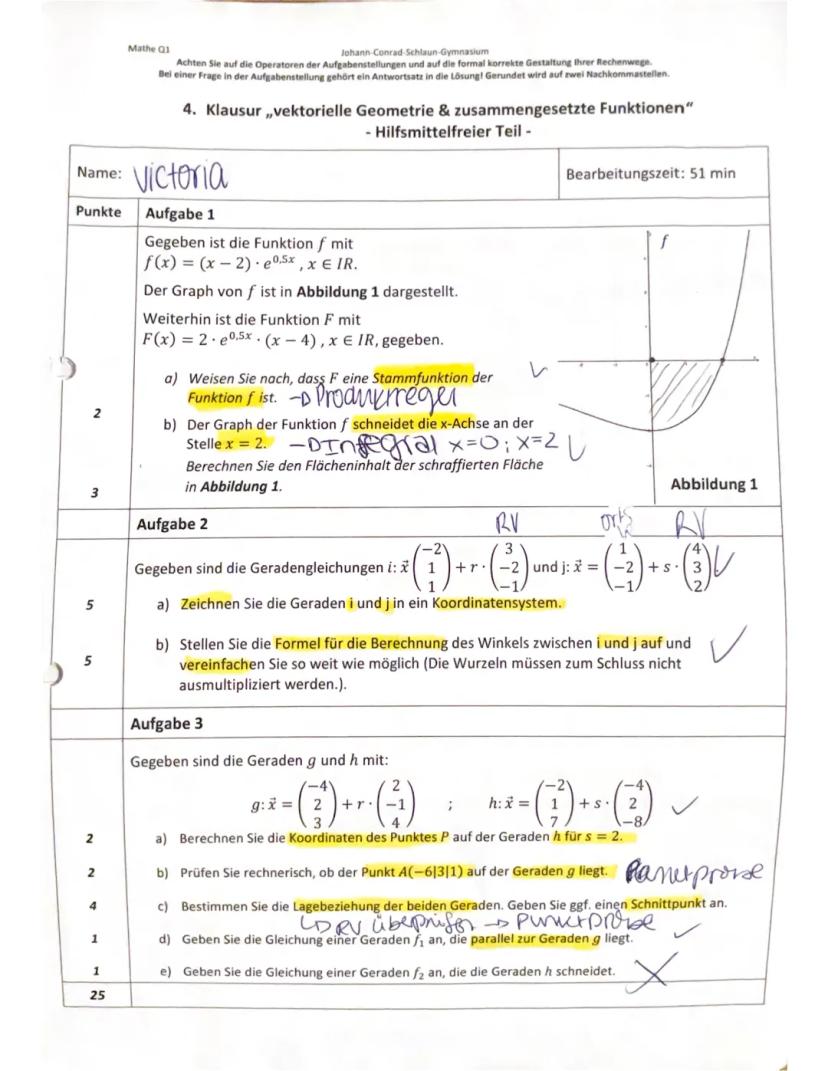 Mathe Q1
Johann-Conrad-Schlaun-Gymnasium
Achten Sie auf die Operatoren der Aufgabenstellungen und auf die formal korrekte Gestaltung Ihrer Rechenwege.
Bei einer Frage in der Aufgabenstellung gehört ein Antwortsatz in die Lösung! Gerundet wird auf zwei Nachkommastellen.
4. Klausur „vektorielle Geometrie & zusammengesetzte Funktionen"
- Hilfsmittelfreier Teil -
Name: Victoria Bearbeitungszeit: 51 min
Punkte Aufgabe 1
Gegeben ist die Funktion f mit
f(x) = (x − 2) · e^0,5x , x ∈ IR.
Der Graph von f ist in Abbildung 1 dargestellt.
Weiterhin ist die Funktion F mit
F(x) = 2 · e^0,5x · (x − 4) , x ∈ IR, gegeben.
f
a) Weisen Sie nach, dass F eine Stammfunktion der
Funktion f ist. → Produktregel
2
b) Der Graph der Funktion f schneidet die x-Achse an der
Stelle x = 2. → Integral x=0; x=2
Berechnen Sie den Flächeninhalt der schraffierten Fläche
3 in Abbildung 1. Abbildung 1
Aufgabe 2 RV orts RV
Gegeben sind die Geradengleichungen i: x⃗ (−2 1 1) + r · (3 −2 −1) und j: x⃗ = (1 −2 −1) + s · (4 3 2)
5 a) Zeichnen Sie die Geraden i und j in ein Koordinatensystem.
b) Stellen Sie die Formel für die Berechnung des Winkels zwischen i und j auf und
5 vereinfachen Sie so weit wie möglich (Die Wurzeln müssen zum Schluss nicht
ausmultipliziert werden.).
Aufgabe 3
Gegeben sind die Geraden g und h mit:
g: x⃗ = (−4 2 3) + r · (2 −1 4) ; h: x⃗ = (−2 1 7) + s · (−4 2 −8)
2 a) Berechnen Sie die Koordinaten des Punktes P auf der Geraden h für s = 2.
2 b) Prüfen Sie rechnerisch, ob der Punkt A(−6|3|1) auf der Geraden g liegt. Punktprobe
4 c) Bestimmen Sie die Lagebeziehung der beiden Geraden. Geben Sie ggf. einen Schnittpunkt an.
↳ RV überprüfen → Punktprobe
1 d) Geben Sie die Gleichung einer Geraden f₁ an, die parallel zur Geraden g liegt.
1 e) Geben Sie die Gleichung einer Geraden f₂ an, die die Geraden h schneidet.
25